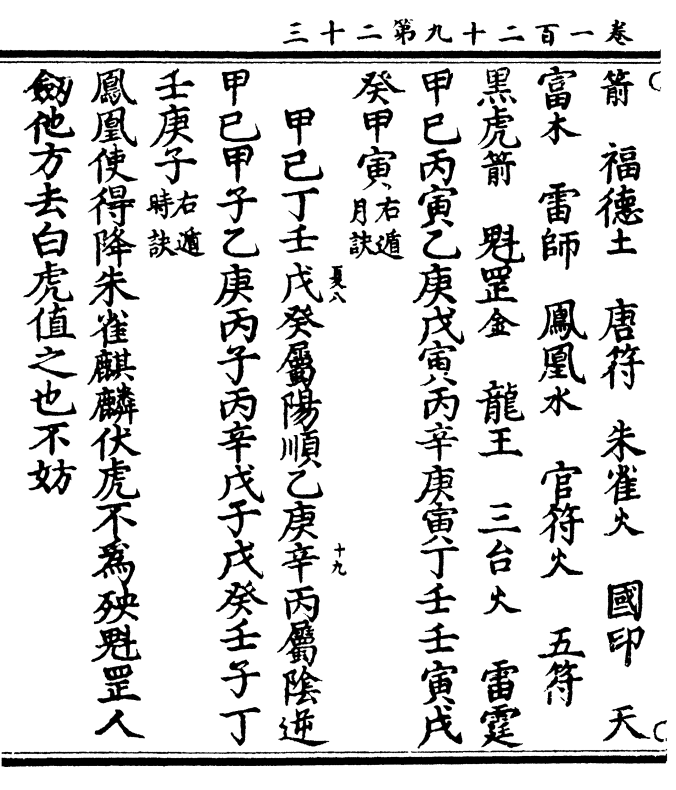 卷一百二十九第二十三
箭　福德土　唐符　朱雀火　國印　天
富木　雷師　鳳凰水　官符火　五符
黑虎箭　魁罡金　龍王　三台火　雷霆
甲己丙寅乙庚戊寅丙辛庚寅丁壬壬寅戊
癸甲寅右遁月訣
甲己丁壬戊夏八癸屬陽順乙庚辛十九丙屬陰逆
甲己甲子乙庚丙子丙辛戊子戊癸壬子丁
壬庚子右遁時訣
鳳凰使得降朱雀麒麟伏虎不為殃魁罡人
劔他方去白虎值之也不妨